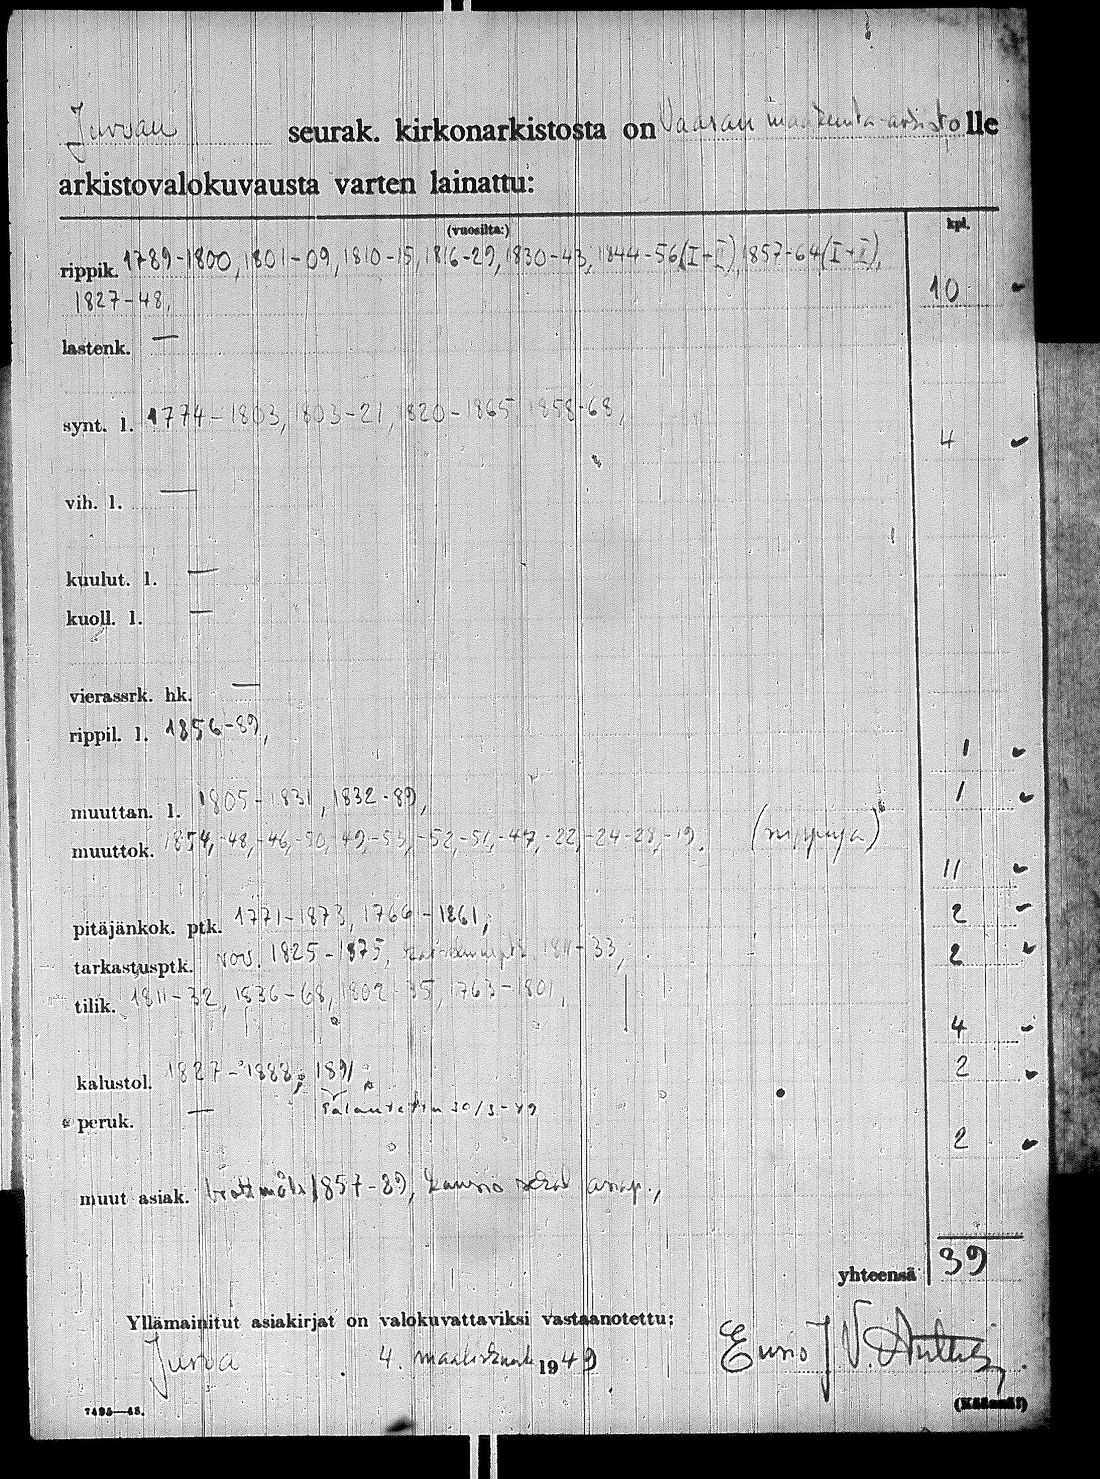 Jurvan seurak. kirkonarkistosta on Vaasan maakunta-arkistolle
arkistovalokuvausta varten lainattu:
(vuosilta:) kpl.
rippik. 1789-1800, 1801-09, 1810-15, 1816-29, 1830-43, 1844-56 (I+II), 1857-64 (I+II),
1827-48, 10
lastenk. —
synt. l. 1774-1803, 1803-21, 1820-1865 1858-68,
4
vih. l. —
kuulut. l. —
kuoll. l. —
vierassrk. hk. —
rippil. l. 1856-89,
1
muuttan. l. 1805-1831, 1832-89, 1
muuttok. 1854,-48,-46,-50,-49,-53,-52,-51,-47,-22,-24-28,-19. (nippuja)
11
pitäjänkok. ptk. 1771-1873, 1766-1861, 2
tarkastusptk. 1825-1875, 1811-33, 2
tilik. 1811-32, 1836-68, 1802-35, 1763-1801,
4
kalustol. 1827-1888, 1891, 2
peruk. — 30/3-49
2
muut asiak. 1857-89,
yhteensä 39
Yllämainitut asiakirjat on valokuvattaviksi vastaanotettu:
Jurva 4. maaliskuuta 1949 J. V.
(Käännä!)
7495—48.